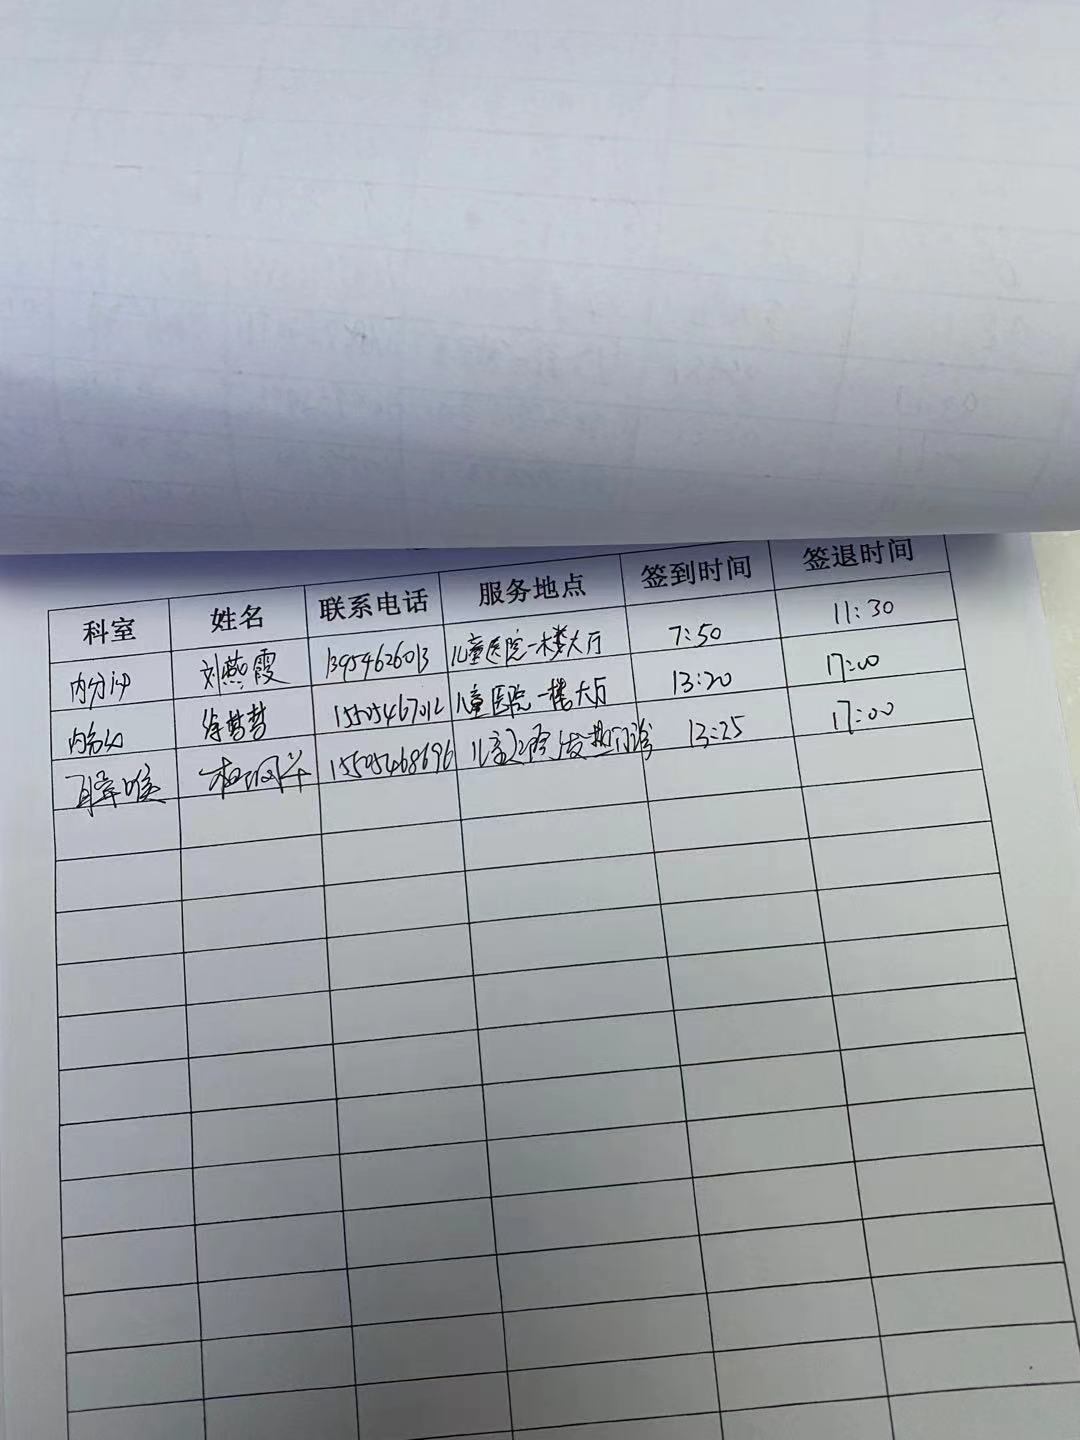 科室 姓名 联系电话 服务地点 签到时间 签退时间
内分泌 刘燕霞 13954626013 儿童医院一楼大厅 7:50 11:30
徐哲哲 15505467012 儿童医院一楼大厅 13:20 17:00
耳鼻喉 15505468696 发热门诊 13:25 17:00